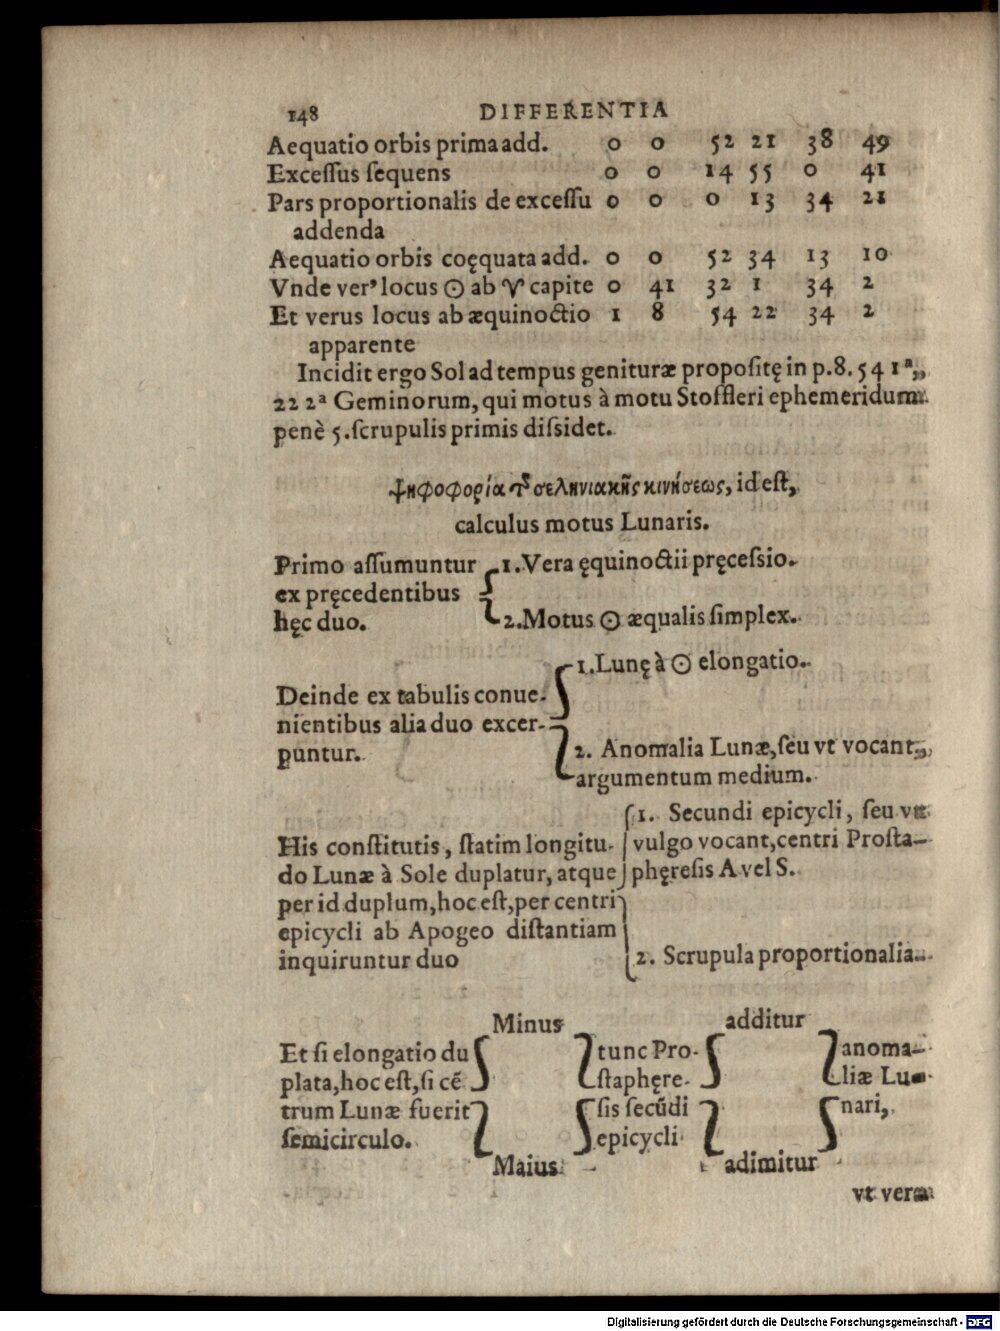 148 DIFFERENTIA
Aequatio orbis prima add. 0 0 52 21 38 49
Excessus sequens 0 0 14 55 0 41
Pars proportionalis de excessu 0 0 0 13 34 21
addenda
Aequatio orbis coęquata add. 0 0 52 34 13 10
Vnde ver⁹ locus ☉ ab ♈ capite 0 41 32 1 34 2
Et verus locus ab æquinoctio 1 8 54 22 34 2
apparente
Incidit ergo Sol ad tempus genituræ propositę in p. 8. 54 1ᵃ,
22 2ᵃ Geminorum, qui motus à motu Stoffleri ephemeridum
penè 5. scrupulis primis dissidet.
ψηφοφορία τ͂ σεληνιακῆς κινήσεως, id est,
calculus motus Lunaris.
Primo assumuntur
ex pręcedentibus
hęc duo.
1. Vera ęquinoctii pręcessio.
2. Motus ☉ æqualis simplex.
Deinde ex tabulis conue-
nientibus alia duo excer-
puntur.
1. Lunę à ☉ elongatio.
2. Anomalia Lunæ, seu vt vocant,
argumentum medium.
His constitutis, statim longitu-
do Lunæ à Sole duplatur, atque
per id duplum, hoc est, per centri
epicycli ab Apogeo distantiam
inquiruntur duo
1. Secundi epicycli, seu vt
vulgo vocant, centri Prosta-
phęresis A vel S.
2. Scrupula proportionalia.
Et si elongatio du
plata, hoc est, si cē
trum Lunæ fuerit
semicirculo.
Minus
Maius
tunc Pro-
staphęre-
sis secūdi
epicycli
additur
adimitur
anoma-
liæ Lu-
nari,
vt vera
Digitalisierung gefördert durch die Deutsche Forschungsgemeinschaft - DFG